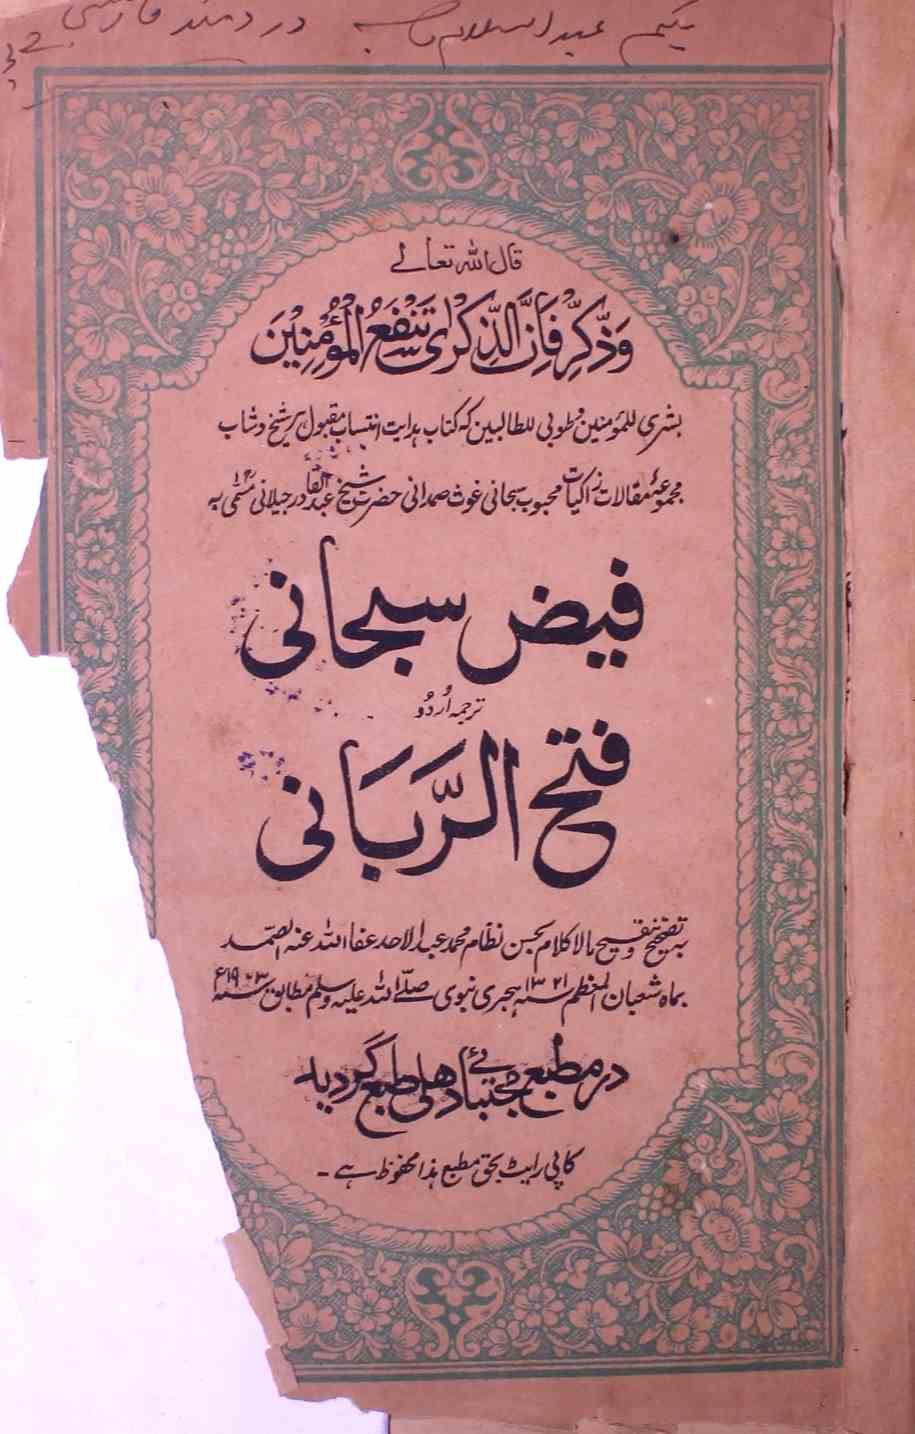 حکیم عبد السلام صاحب دردمند
قال الله تعالے
وَذَكِّرْ فَاِنَّ الذِّكْرٰى تَنْفَعُ الْمُؤْمِنِيْنَ
بشرى للمؤمنین وطوبى للطالبین کہ کتاب ہدایت انتساب مقبول ہر شیخ وشاب
مجموعۂ مقالات زاکیات محبوب سبحانی غوث صمدانی حضرت شیخ عبد القادر جیلانی مسمی بہ
فیض سبحانی
ترجمہ اُردُو
فتح الرّبانی
بہ تصحیح و تنقیح مالا کلام بحسن نظام محمد عبد الاحد عفا الله عنہ الصمد
بماہ شعبان المعظم ۱۳۲۱ سنہ ہجری نبوی صلے الله علیہ وسلم مطابق سنہ ۱۹۰۳ء
در مطبع مجتبائے دهلی طبع گردید
کاپی رایٹ بحق مطبع ہذا محفوظ ہے ۔